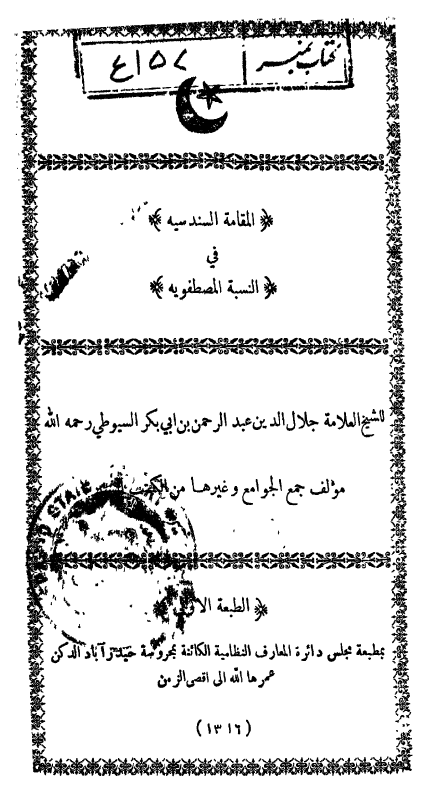 کتاب نمبر
المقامة السندسيه
في
النسبة المصطفويه
للشيخ العلامة جلال الدين عبد الرحمن بن ابي بكر السيوطي رحمه الله
مؤلف جمع الجوامع وغيرها من الكتب
الطبعة الاولى
بمطبعة مجلس دائرة المعارف النظامية الكائنة بمحروسة حيدرآباد الدكن
عمرها الله الى اقصى الزمن
(١٣١٦)